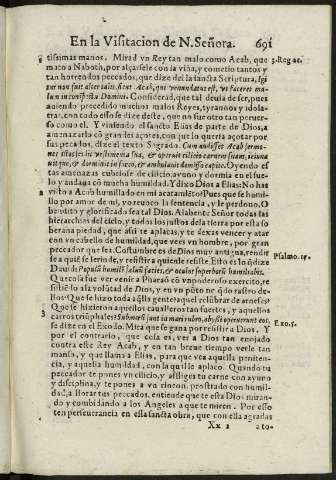 En la Visitacion de N. Señora. 691
tissimas manos. Mirad vn Rey tan malo como Acab, que 3. Reg. 21.
mato a Naboth, por alçarsele con la viña, y cometio tantos y
tan horrendos peccados, que dize del la sancta Scriptura,
fuit alter talis sicut Acab, qui venundatus est, vt faceret ma-
lum in conspectu Domini. Considerad, que tal deuia de ser, pues
auiendo precedido muchos malos Reyes, tyrannos, y idola-
tras, con todo esso se dize deste, que no fue otro tan peruer-
so como el. Y viniendo el sancto Elias de parte de Dios, a
amenazarlo cõ grandes açotes, con que lo queria açotar por
sus peccados, dize el texto Sagrado. Cum audisset Acab sermo-
nes istos, scidit vestimenta sua, & operuit cilicio carnem suam, ieiuna
uitque, & dormiuit in sacco, & ambulauit demisso capite. Oyendo el
tas amenazas cubriose de cilicio, ayuno y dormia en el sue-
lo y andaua cõ mucha humildad. Y dixo Dios a Elias: No has
visto a Acab humillado en mi acatamiẽto? Pues que se humi-
llo por amor de mi, yo reuoco la sentencia, y le perdono. O
bendito y glorificado sea tal Dios. Alabente Señor todas las
hierarchias del cielo, y todos los justos dela tierra por esta so
berana piedad, que assi te aplacas, y te dexas vencer y atar
con vn cabello de humildad, que vees vn hombre, por gran
peccador que sea. Costumbre es de Dios muy antigua, rendir
se a quiẽ se le rinde, y resistir a quien le resiste. Esto es lo q̃ dize
Dauid. Populũ humilẽ saluũ facies, & oculos superborũ humiliabis. Psalmo. 17.
Que cosa fue ver venir a Pharaõ cõ vn poderoso exercito, re
sistiẽ lo a la volũtad de Dios, y en vn põto ni q̃dò rastro de-
llos. Que se hizo toda aq̃lla gente? aquel relũbrar de arneses?
Que se hizieron aquellos caualleros tan fuertes, y aquellos
carros triũphales? Submersi sunt in mari rubro, abyssi operuerunt eos,
se dize en el Exodo. Mira que se gana por resistir a Dios. Y Exo. 5.
por el contrario, que cosa es, ver a Dios tan enojado
contra este Rey Acab, y en tan breue tiempo verle tan
manso, y que llama a Elias, para que vea aquella peniten-
cia, y aquella humildad, con la qual le aplaco. Quando tu
peccador te pones vn cilicio, y affliges tu carne con ayuno
y disciplina, y te pones a vn rincon, prostrado con humil-
dad, a llorar tus peccados, entiende que te esta Dios miran-
do y combidando a los Angeles a que te miren. Por esso
ten perseuerancia en essa sancta obra, que con ella agradas
Xx 2 a to-